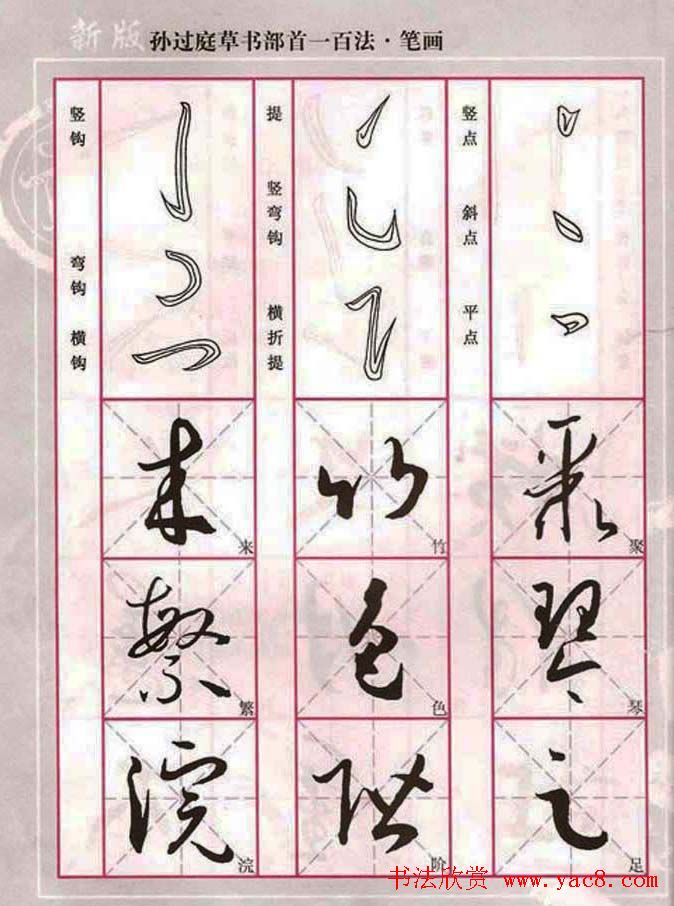 新版 孙过庭草书部首一百法·笔画
竖点
斜点
平点
聚
琴
足
提
竖弯钩
横折提
竹
色
阶
竖钩
弯钩
横钩
来
繁
浣
书法欣赏 www.yac8.com